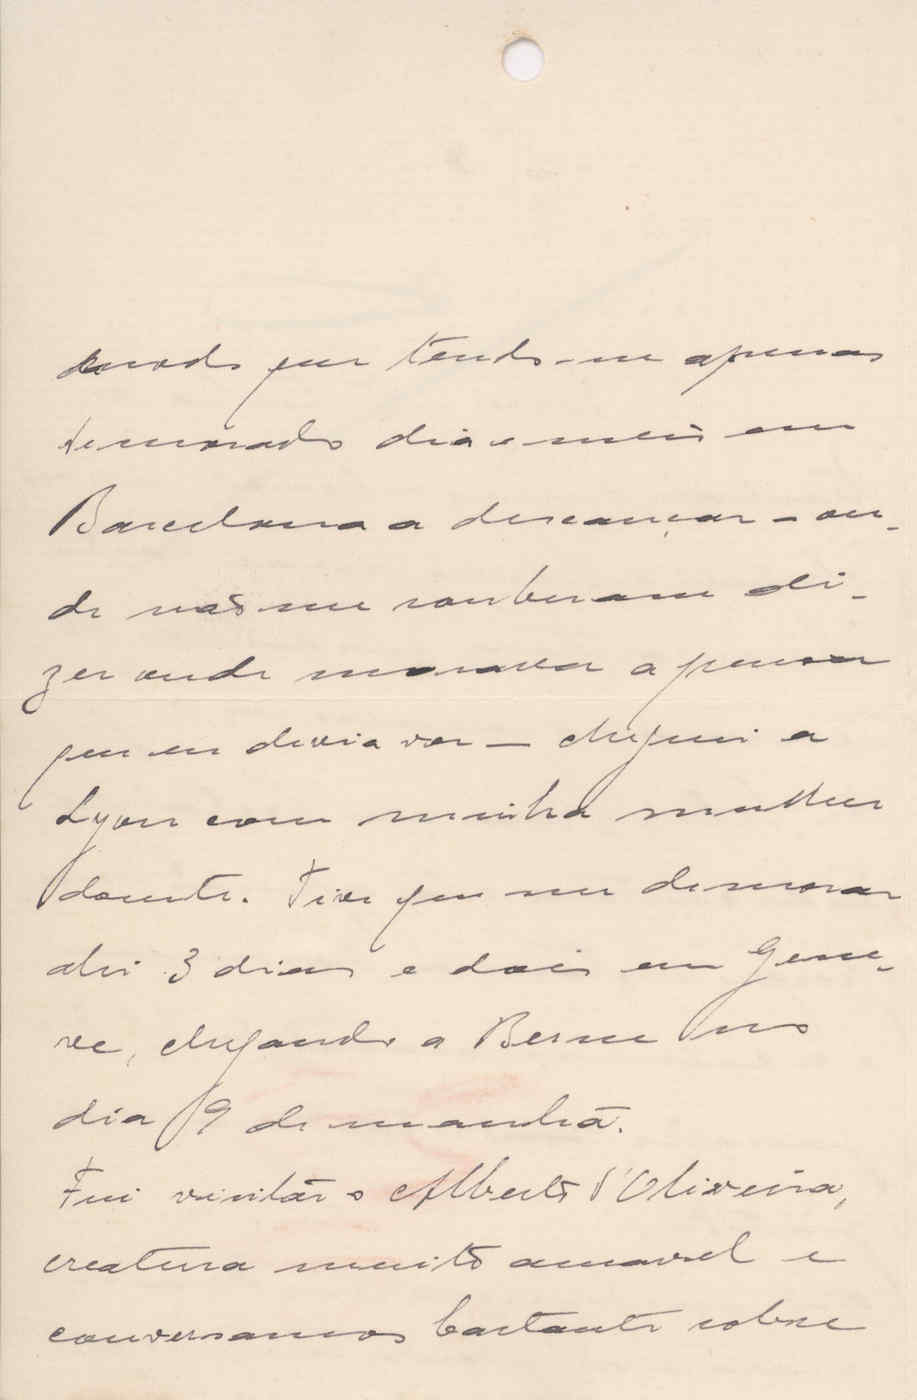 que tendo-me apenas
demorado dia e meio em
Barcelona a descançar – on-
de não me souberam di-
zer onde morava a pessoa
que eu devia ver – cheguei a
Lyon com minha mulher
doente. Tive que me demorar
ahi 3 dias e dois em Gene-
ve, chegando a Berne no
dia 9 de manhã.
Fui visitar o Alberto d'Oliveira,
creatura muito amavel e
conversamos bastante sobre